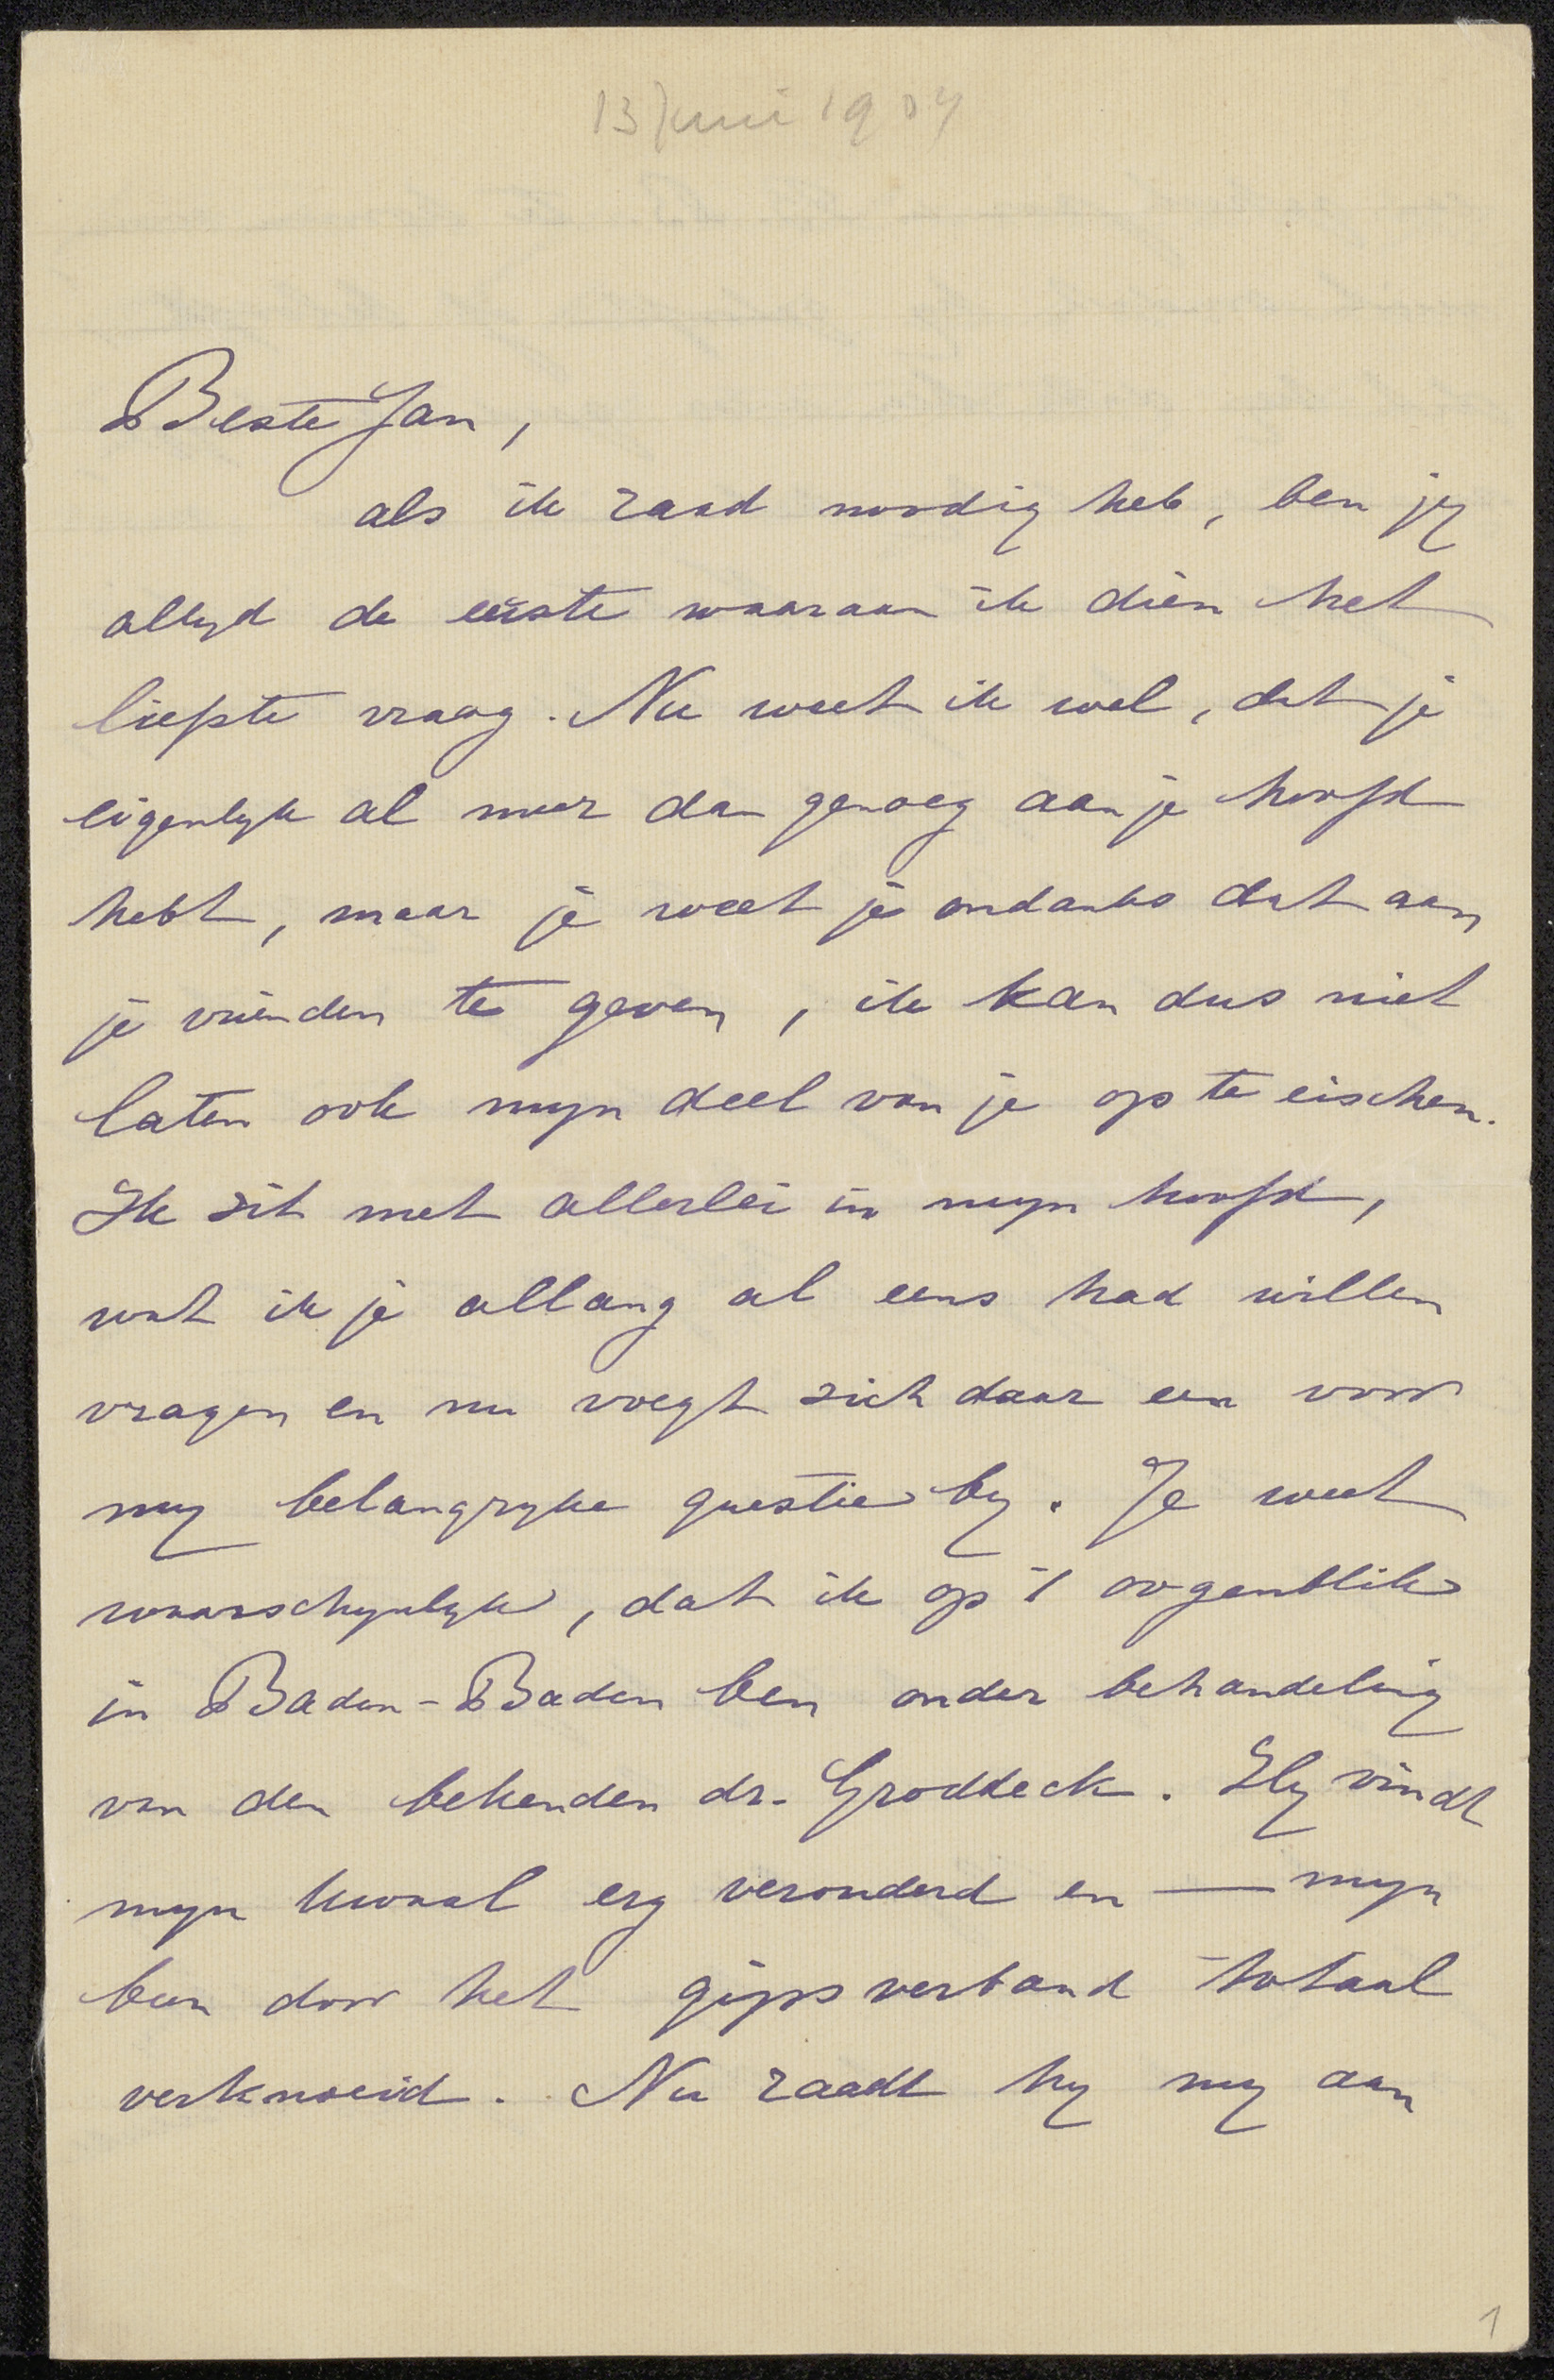 13 Juni 1904
Beste Jan,
als ik raad noodig heb, ben jy
altyd de eerste waaraan ik dien het
liefste vraag. Nu weet ik wel, dat je
eigenlyk al meer dan genoeg aan je hoofd
hebt, maar je weet je ondanks dat aan
je vrienden te geven, ik kan dus niet
laten ook myn deel van je op te eischen.
Ik zit met allerlei in myn hoofd,
wat ik je allang al eens had willen
vragen en nu voegt zich daar een voor
my belangryke questie by. Je weet
waarschynlyk, dat ik op 't oogenblik
in Baden-Baden ben onder behandeling
van den bekenden dr. Groddeck. Hy vindt
myn kwaal erg verouderd en — myn
been door het gipsverband totaal
verknoeid. Nu raadt hy my aan
1